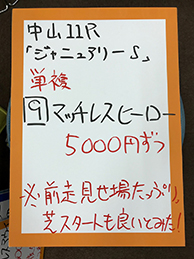 中山11R
「ジャニュアリーS」
単複
9 マッチレスヒーロー
5000円ずつ
※前走見せ場たっぷり、
芝スタートも良いとみた!